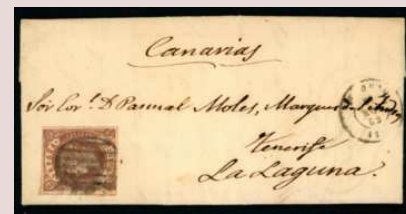 Canarias
Sor Cor.l D Pascual Moles, Marques de
Tenerife
La Laguna.